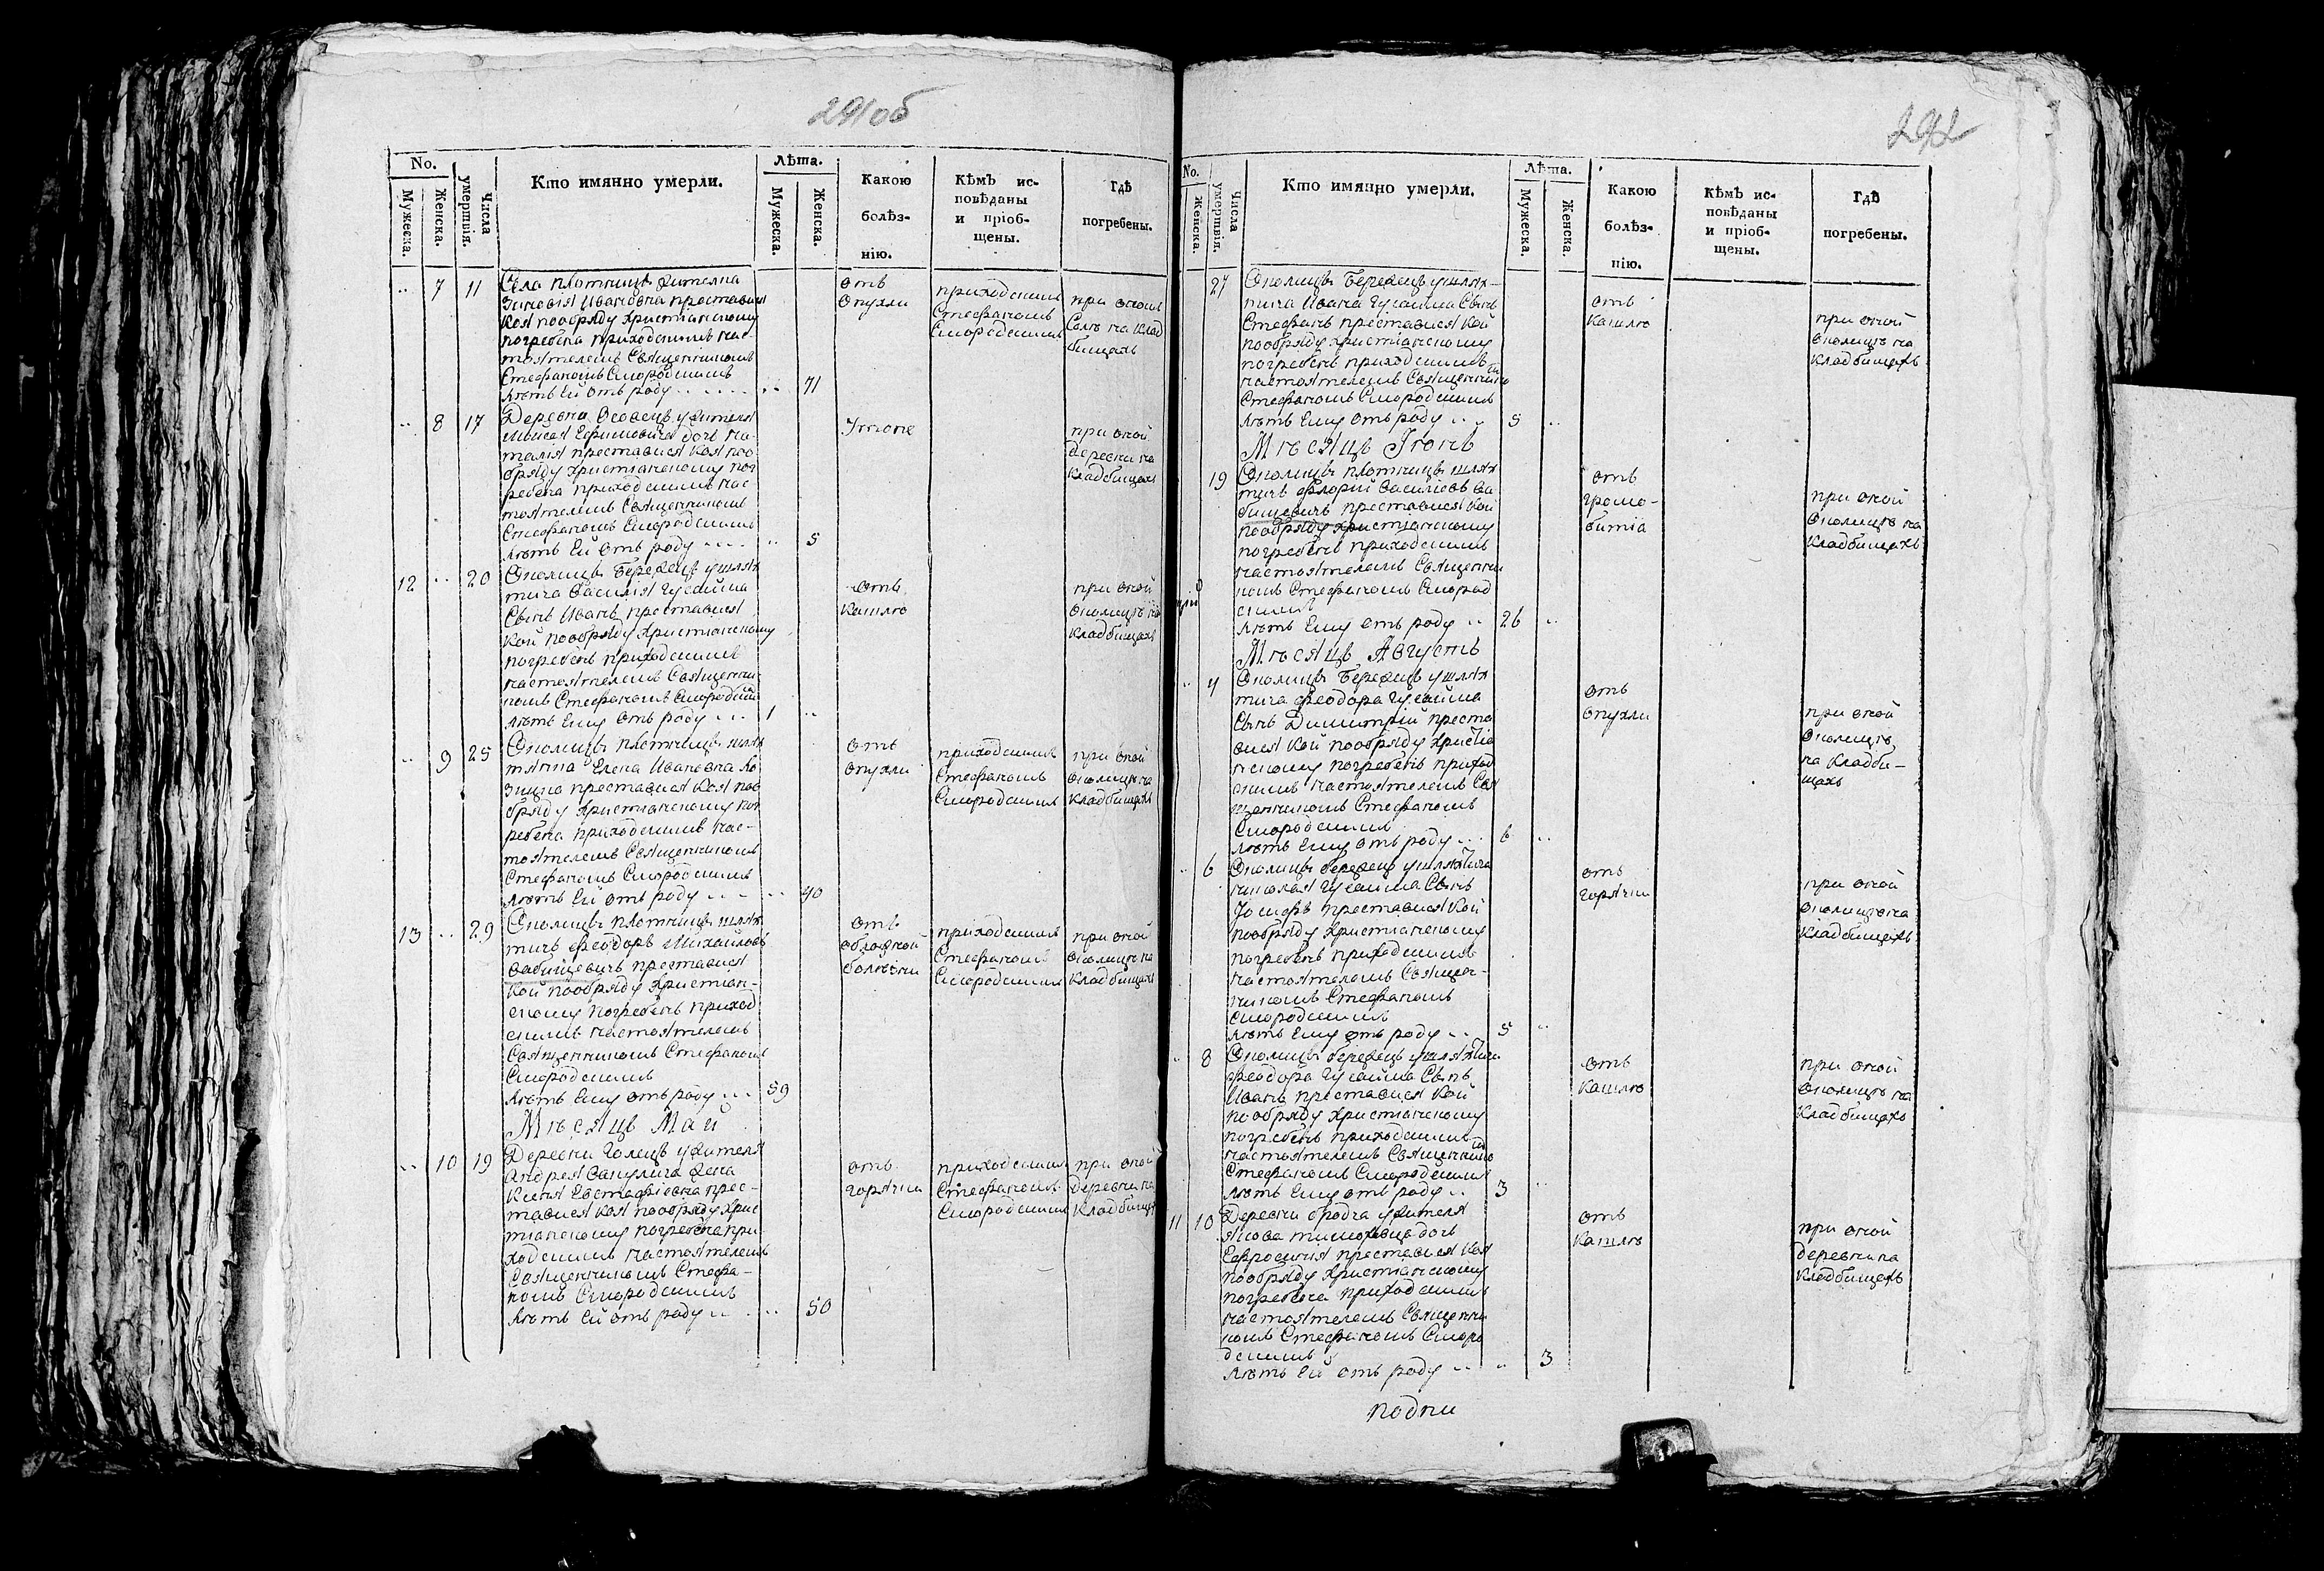 291об
No.
Мужеска.
Женска.
Числа умертвія.
Кто имянно умерли.
Лѣта.
Мужеска.
Женска.
Какою болѣз-
нію.
Кѣмъ ис-
повѣданы
и пріоб-
щены.
Гдѣ
погребены.
7 11 Села Плотницы жителка
Зиновія Ивановна преставися
коя пообряду христіанскому
погребена приходскимъ нас-
тоятелемъ Священникомъ
Стефаномъ Смородскимъ
лѣтъ Ей отъ роду 71
отъ
опухли
приходскимъ
Стефаномъ
Смородскимъ
при ономъ
Селѣ на клад
бищахъ
8 17 Деревни Осовецъ у жителя
дочь На-
талія преставися коя поо-
бряду христіанскому пог
ребена приходскимъ нас
тоятелемъ Священникомъ
Стефаномъ Смородскимъ
лѣтъ Ей отъ роду 5
при оной
деревни на
кладбищахъ
12 20 Околицы Бережец у шлях
тича Василія
Сынъ Иванъ преставися
кой пообряду христіанскому
погребенъ приходскимъ
настоятелемъ Священни
комъ Стефаномъ
лѣтъ Ему отъ роду 1
отъ
кашлю
при оной
околицѣ на
кладбищахъ
9 25 Околицы Плотницы шлях
тянка Елена Ивановна
преставися коя поо
бряду христіанскому пог
ребена приходскимъ нас-
тоятелемъ Священникомъ
Стефаномъ Смородскимъ
лѣтъ Ей отъ роду 40
отъ
опухли
приходскимъ
Стефаномъ
Смородскимъ
при оной
околицѣ на
кладбищахъ
13 29 Околицы Плотницы шлях
тичъ Феодоръ Михайловъ
Бабицевичъ преставися
кой пообряду христіан-
скому погребенъ приход
скимъ настоятелемъ
Священникомъ Стефаномъ
Смородскимъ
лѣтъ Ему отъ роду 59
отъ
обложной
болѣзни
приходскимъ
Стефаномъ
Смородскимъ
при оной
околицѣ на
кладбищахъ
Мѣсяцъ Май
10 19 Деревни Голецъ у жителя
Андрея жена
Евстафіевна прес-
тавися коя пообряду хрис
тіанскому погребена при
ходскимъ настоятелемъ
Священникомъ Стефа-
номъ Смородскимъ
лѣтъ Ей отъ роду 50
отъ
горячки
приходскимъ
Стефаномъ
Смородскимъ
при оной
деревни на
кладбищ
292
No.
Женска.
Числа умертвія.
Кто имянно умерли.
Лѣта.
Мужеска.
Женска.
Какою
болѣз-
нію.
Кѣмъ ис-
повѣданы
и пріоб-
щены.
Гдѣ
погребены.
27 Околицы Бережецъ у шлях-
тича Ивана Сынъ
Стефанъ преставися кой
пообряду христіанскому
погребенъ приходскимъ
настоятелемъ Священникомъ
Стефаномъ Смородскимъ
лѣтъ Ему отъ роду 5
отъ
кашлю
при оной
околицѣ на
кладбищахъ
Мѣсяцъ Іюнь
19 Околицы Плотницы шлях
тичъ Флорій Василіевъ Ба
бицевичъ преставися кой
пообряду христіанскому
погребенъ приходскимъ
настоятелемъ Священни
комъ Стефаномъ Смород
скимъ
лѣтъ Ему отъ роду 26
отъ
громо-
битія
при оной
околицѣ на
кладбищахъ
Мѣсяцъ Августъ
4 Околицы Бережецъ у шлях
тича Феодора
Сынъ Димитрій преста
вися кой пообряду христіа
нскому погребенъ приход
скимъ настоятелемъ Свя
щенникомъ Стефаномъ
Смородскимъ
лѣтъ Ему отъ роду 6
отъ
опухли
при оной
околицѣ
на кладби-
щахъ
6 Околицы Бережец у шляхтича
Николая Сынъ
Іосифъ преставися кой
пообряду христіанскому
погребенъ приходскимъ
настоятелемъ Священ-
никомъ Стефаномъ
Смородскимъ
лѣтъ Ему отъ роду 5
отъ
горячки
при оной
околицѣ на
кладбищахъ
8 Околицы Бережец у шляхтича
Феодора Сынъ
Иванъ преставися кой
пообряду христіанскому
погребенъ приходскимъ
настоятелемъ Священникомъ
Стефаномъ Смородскимъ
лѣтъ Ему отъ роду 3
отъ
кашлю
при оной
околицѣ на
кладбищахъ
11 10 Деревни Бродча у жителя
дочь
Евфросинія преставися коя
пообряду христіанскому
погребена приходскимъ
настоятелемъ Священни
комъ Стефаномъ Сморо
дскимъ
лѣтъ Ей отъ роду 3
отъ
кашлю
при оной
деревни на
кладбищахъ
подпи